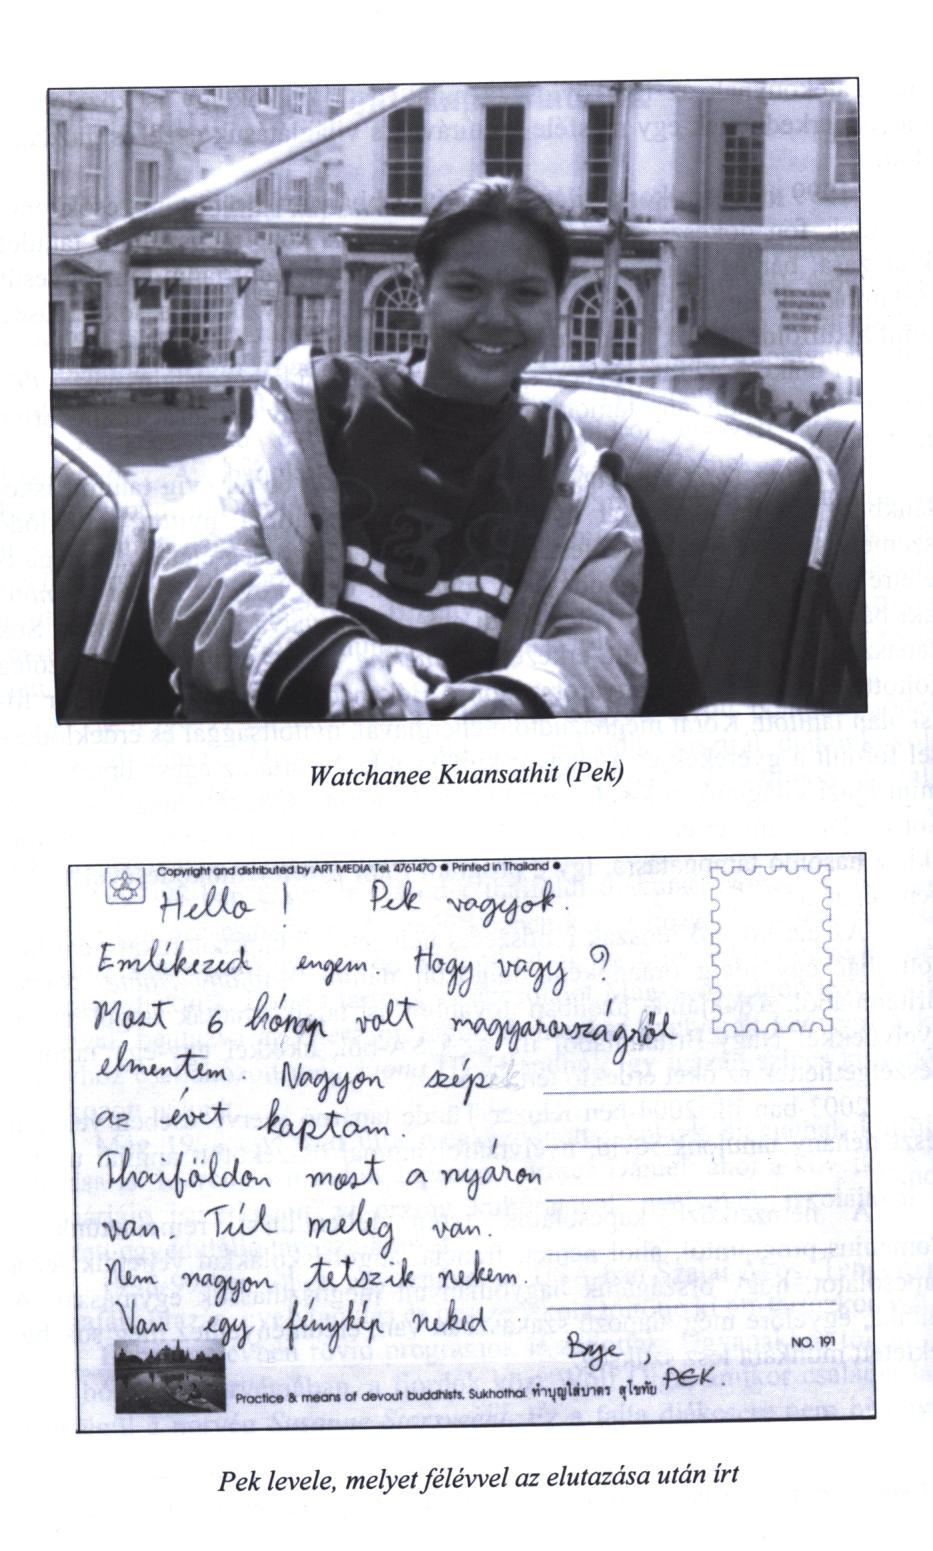 Watchanee Kuansathit (Pek)
Copyright and distributed by ART MEDIA Tel. 4761470 ● Printed in Thailand ●
Hello ! Pek vagyok.
Emlékezed engem. Hogy vagy ?
Most 6 hónap volt magyarországról
elmentem. Nagyon szépek
az évet kaptam.
Thaiföldon most a nyáron
van. Túl meleg van.
Nem nagyon tetszik nekem.
Van egy fénykép neked
Bye,
NO. 191
PEK.
Practice & means of devout buddhists, Sukhothai. ทำบุญใส่บาตร สุโขทัย
Pek levele, melyet félévvel az elutazása után írt